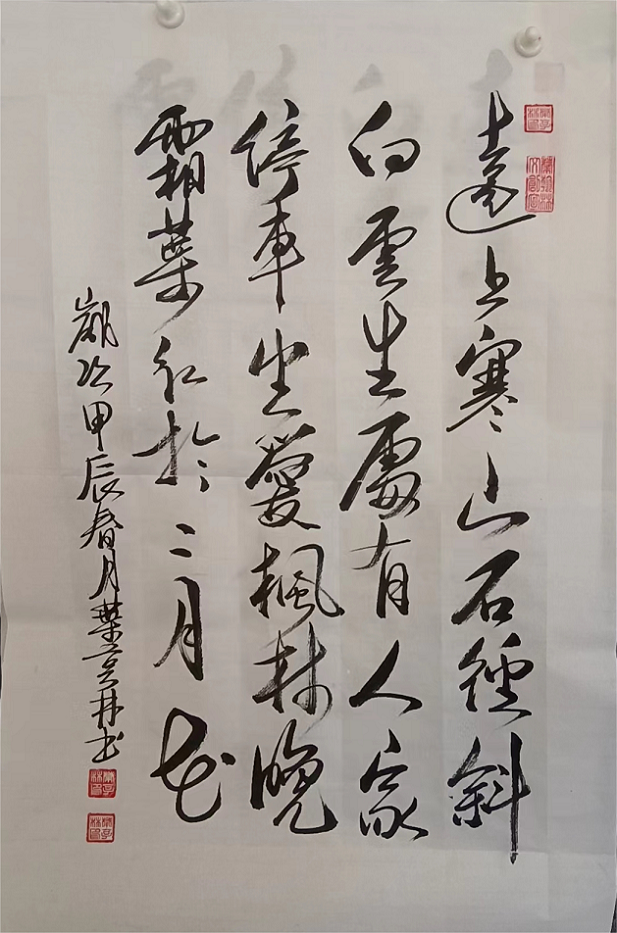 遠上寒山石徑斜
白雲生處有人家
停車坐愛楓林晚
霜葉紅於二月花
歲次甲辰春月葉書